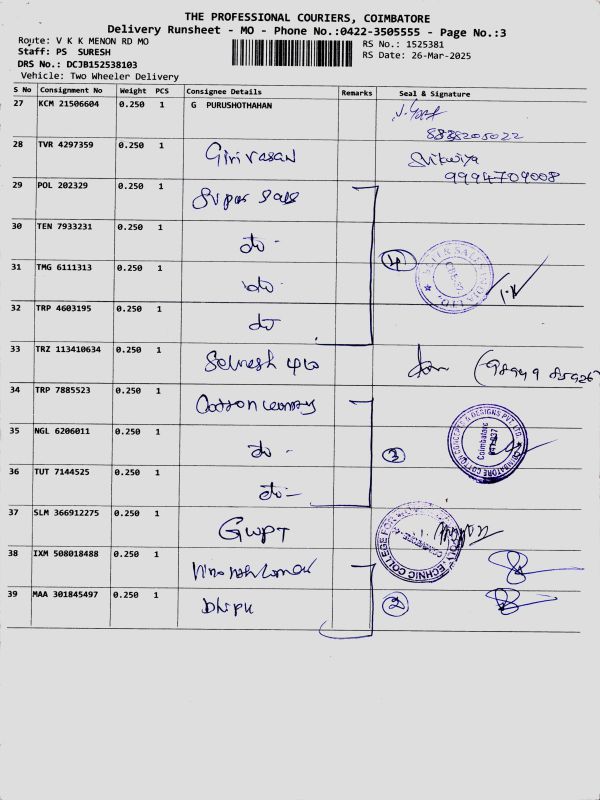 THE PROFESSIONAL COURIERS, COIMBATORE
Delivery Runsheet - MO - Phone No.:0422-3505555 - Page No.:3
Route: V K K MENON RD MO
RS No.: 1525381
Staff: PS SURESH
RS Date: 26-Mar-2025
DRS No.: DCJB152538103
Vehicle: Two Wheeler Delivery
S No Consignment No Weight PCS Consignee Details Remarks Seal & Signature
27 KCM 21506604 0.250 1 G PURUSHOTHAHAN
8838205022
28 TVR 4297359 0.250 1 Girivasan
9994704008
29 POL 202329 0.250 1
30 TEN 7933231 0.250 1 do -
4
31 TMG 6111313 0.250 1 do -
32 TRP 4603195 0.250 1 do
33 TRZ 113410634 0.250 1
34 TRP 7885523 0.250 1
COTTON CONCEPTS & DESIGNS PVT. LTD.
Coimbatore
COIMBATORE
35 NGL 6206011 0.250 1 do -
3
36 TUT 7144525 0.250 1 do -
37 SLM 366912275 0.250 1 GWPT
POLYTECHNIC COLLEGE FOR WOMEN
38 IXM 508018488 0.250 1
39 MAA 301845497 0.250 1
2